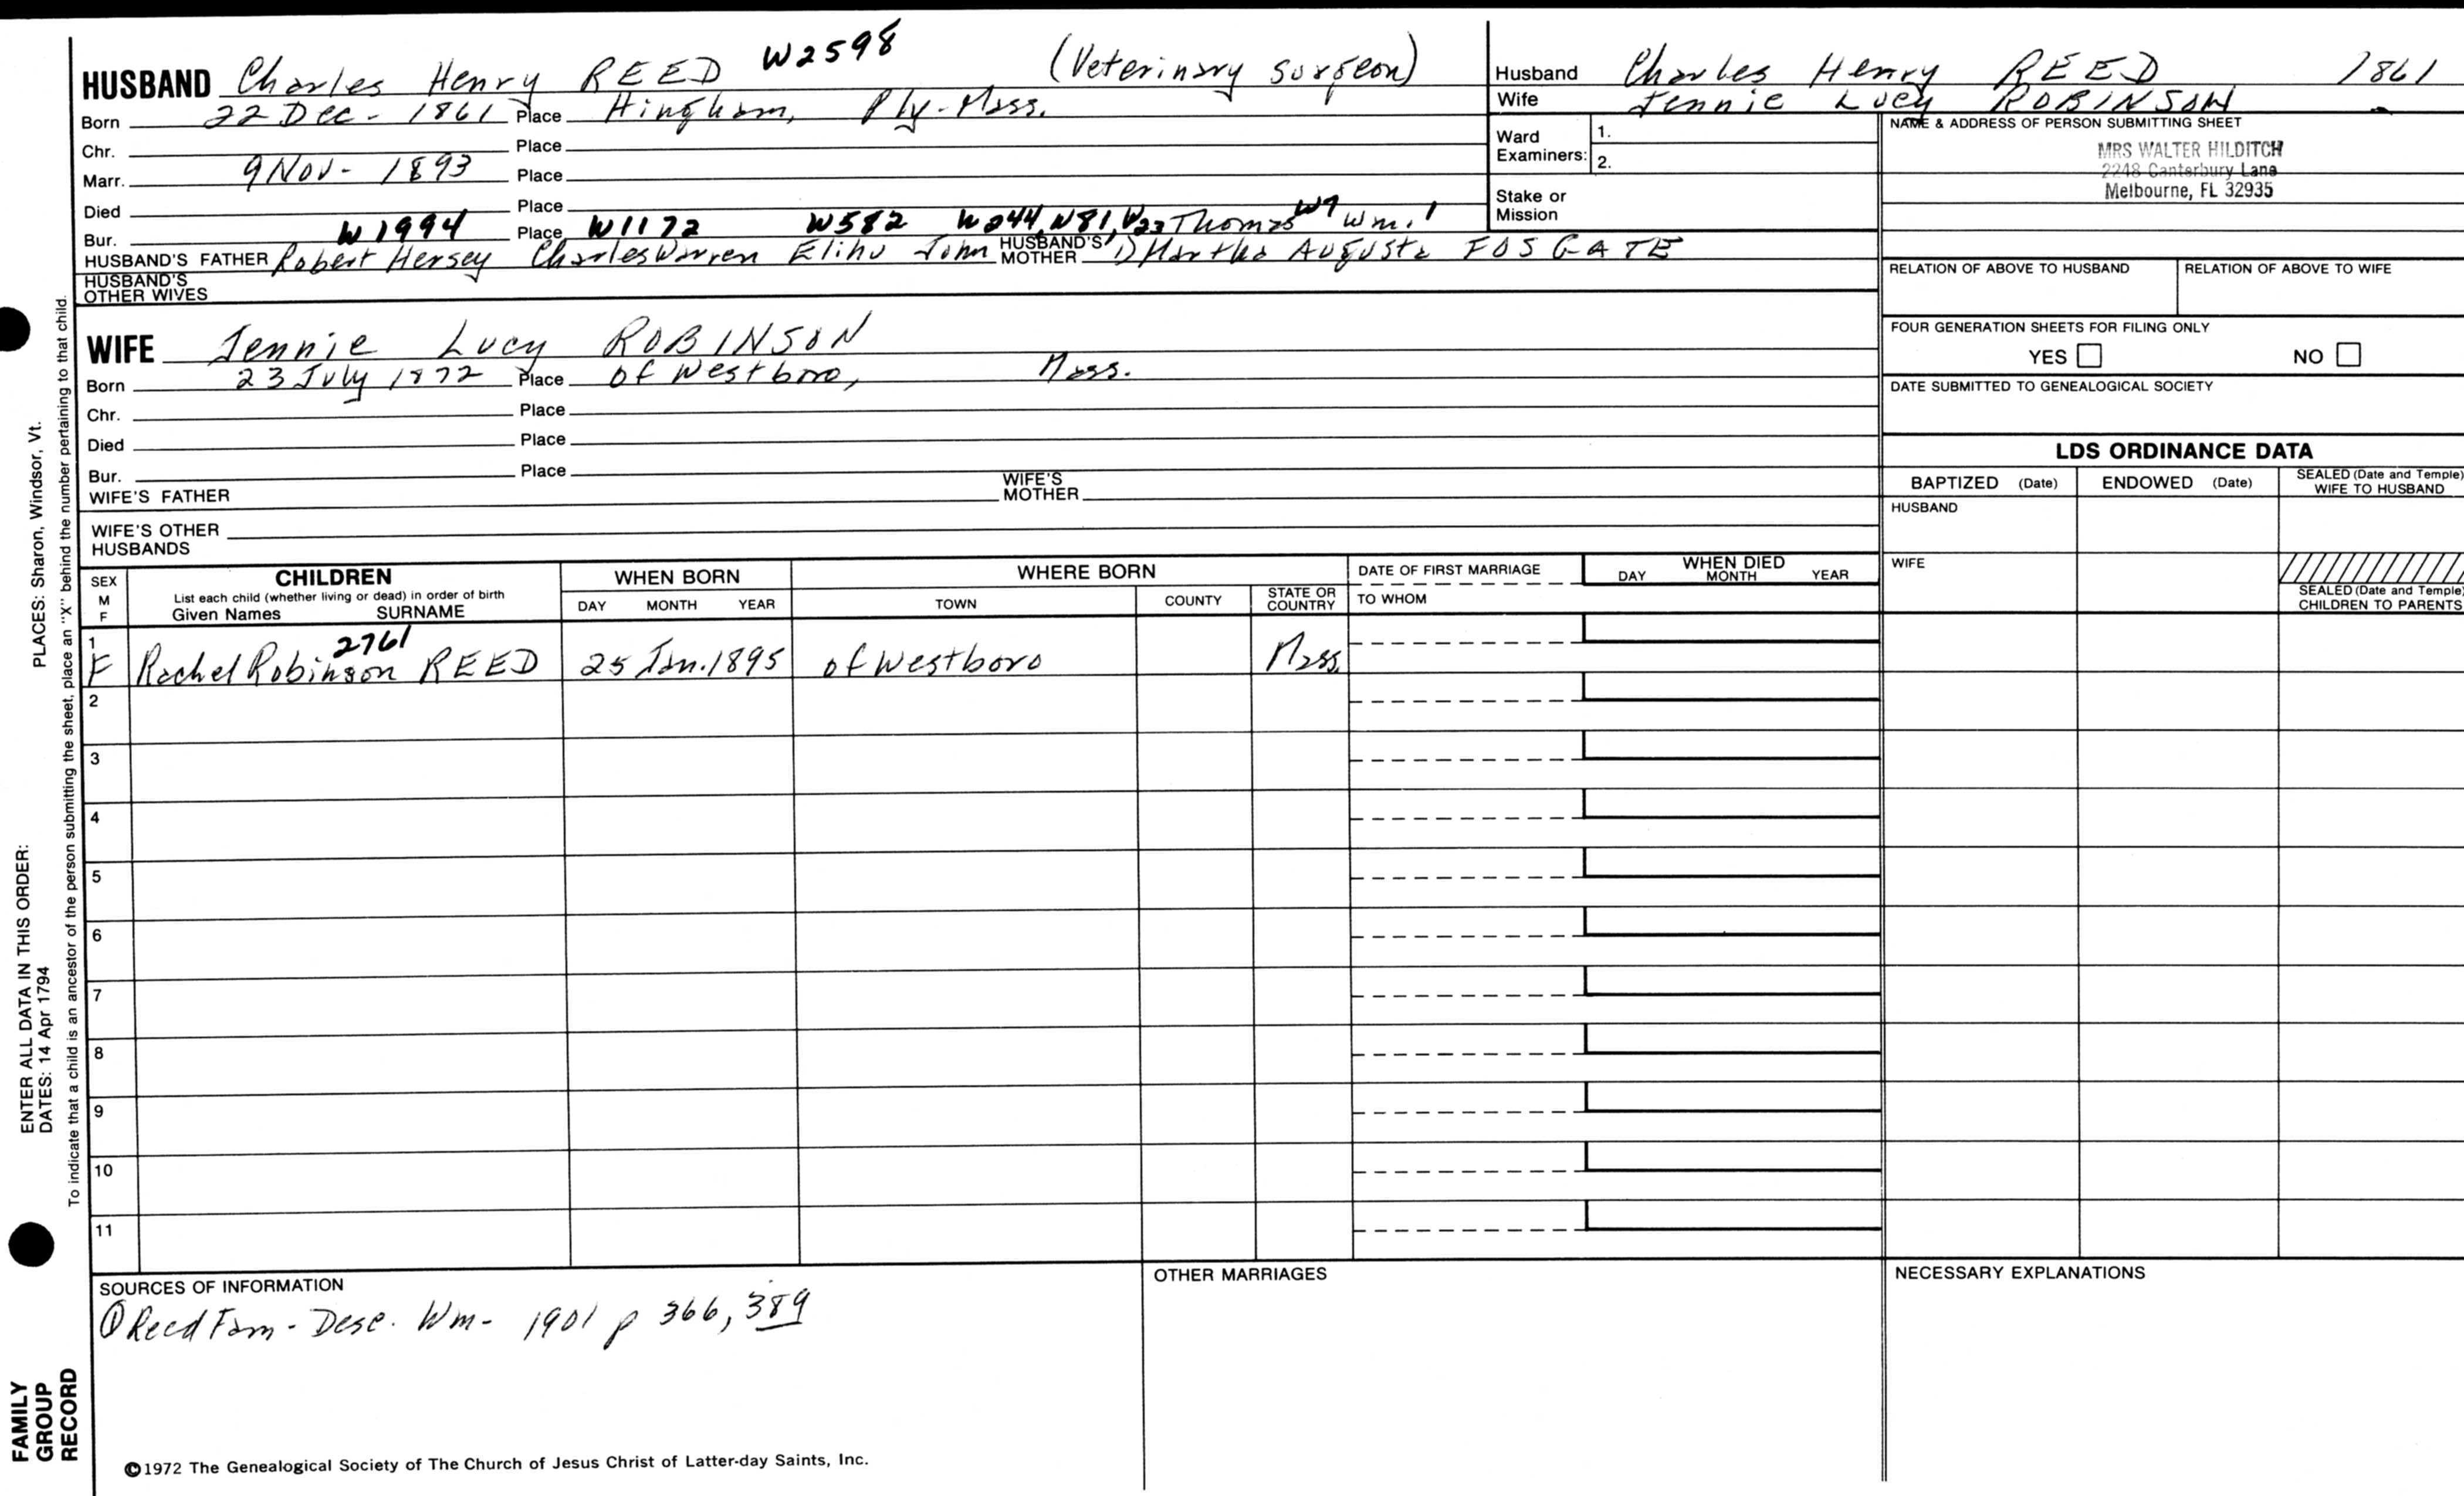 HUSBAND Charles Henry REED W2598 (Veterinary surgeon)
Born 22 Dec - 1861 Place Hingham, Ply-Mass.
Chr. Place
Marr. 9 Nov - 1893 Place
Died Place
Bur. Place
W1994 W1172 W582 W244, W81, W23 W7 1
HUSBAND'S FATHER Robert Hersey Charles Warren Elihu John Thomas Wm. HUSBAND'S MOTHER 1) Martha Augusta FOSGATE
HUSBAND'S OTHER WIVES
WIFE Jennie Lucy ROBINSON
Born 23 July 1872 Place of Westboro, Mass.
Chr. Place
Died Place
Bur. Place
WIFE'S FATHER WIFE'S MOTHER
WIFE'S OTHER HUSBANDS
Husband Charles Henry REED 1861
Wife Jennie Lucy ROBINSON -
Ward Examiners: 1.
2.
Stake or Mission
NAME & ADDRESS OF PERSON SUBMITTING SHEET
MRS WALTER HILDITCH
2248 Canterbury Lane
Melbourne, FL 32935
RELATION OF ABOVE TO HUSBAND RELATION OF ABOVE TO WIFE
FOUR GENERATION SHEETS FOR FILING ONLY
YES NO
DATE SUBMITTED TO GENEALOGICAL SOCIETY
LDS ORDINANCE DATA
BAPTIZED (Date) ENDOWED (Date) SEALED (Date and Temple) WIFE TO HUSBAND
HUSBAND
WIFE
SEALED (Date and Temple) CHILDREN TO PARENTS
SEX M F
CHILDREN
List each child (whether living or dead) in order of birth
Given Names SURNAME
WHEN BORN
DAY MONTH YEAR
WHERE BORN
TOWN COUNTY STATE OR COUNTRY
DATE OF FIRST MARRIAGE
TO WHOM
WHEN DIED
DAY MONTH YEAR
1 2761
F Rachel Robinson REED 25 Jan. 1895 of Westboro Mass.
2
3
4
5
6
7
8
9
10
11
SOURCES OF INFORMATION
① Reed Fam - Desc. Wm - 1901 p 366, 389
OTHER MARRIAGES
NECESSARY EXPLANATIONS
©1972 The Genealogical Society of The Church of Jesus Christ of Latter-day Saints, Inc.
FAMILY
GROUP
RECORD
ENTER ALL DATA IN THIS ORDER:
DATES: 14 Apr 1794
PLACES: Sharon, Windsor, Vt.
To indicate that a child is an ancestor of the person submitting the sheet, place an "X" behind the number pertaining to that child.